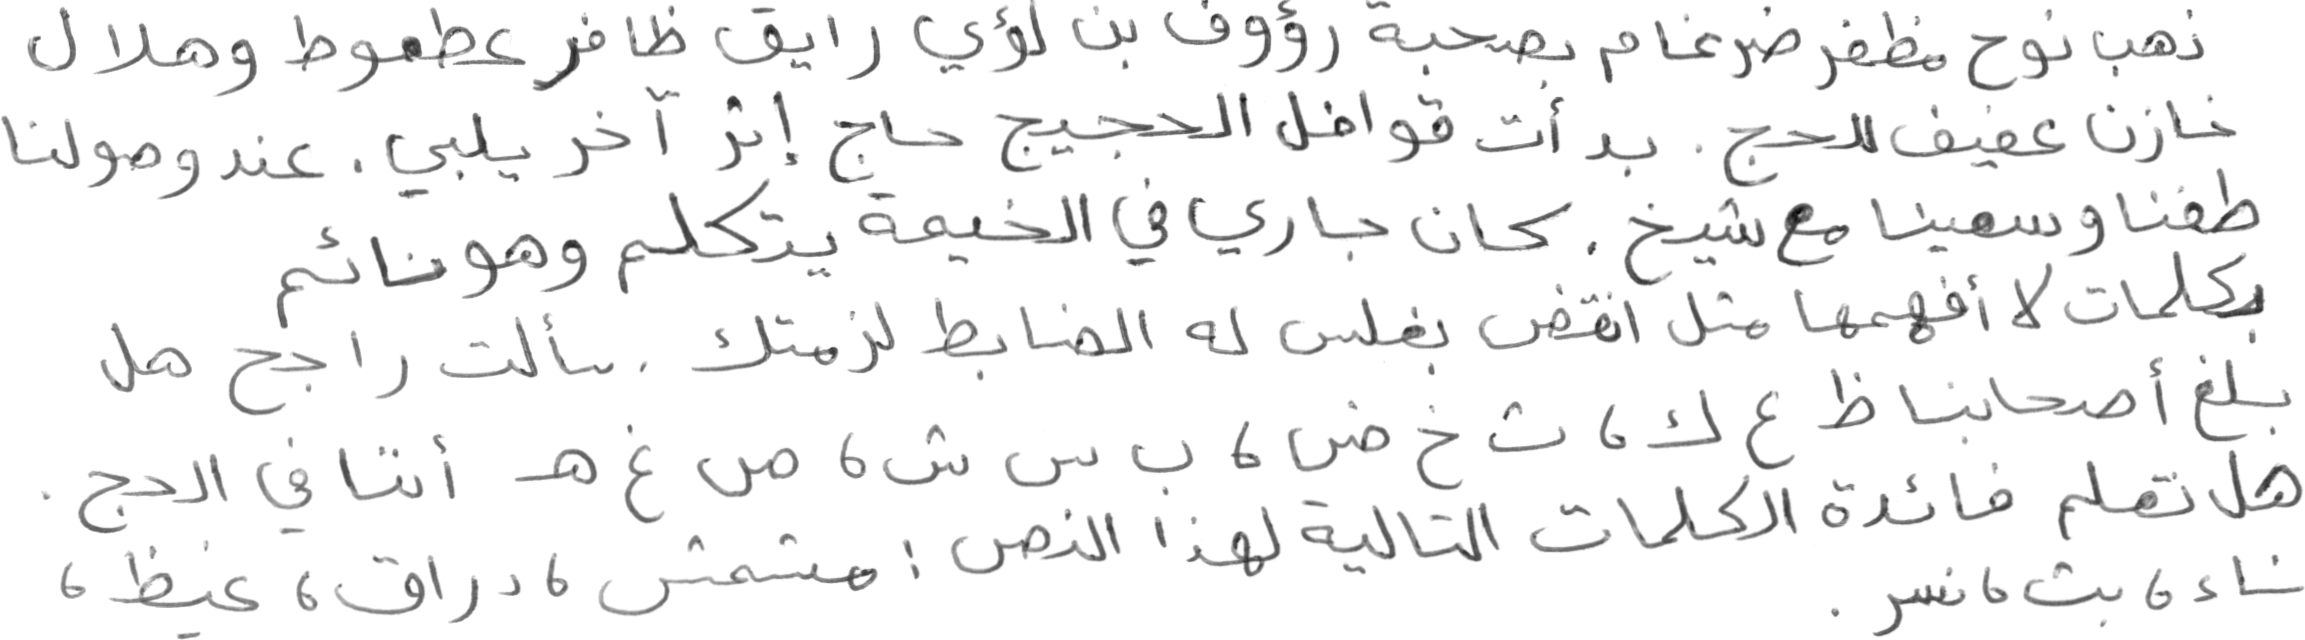 ذهب نوح مظفر ضرغام بصحبة رؤوف بن لؤي رايق ظافر عطعوط وهلال
خازن عفيف للحج. بدأت قوافل الحجيج حاج إثر آخر يلبي. عند وصولنا
طفنا وسعينا مع شيخ. كان جاري في الخيمة يتكلم وهو نائم
بكلمات لا أفهمها مثل انقض بغلس له الضابط لزمتك. سألت راجح هل
بلغ أصحابنا ظ ع ك، ث خ ض، ب س ش، ص غ هـ أننا في الحج.
هل تعلم فائدة الكلمات التالية لهذا النص: مشمش، دراق، غيظ،
شاء، بث، نسر.